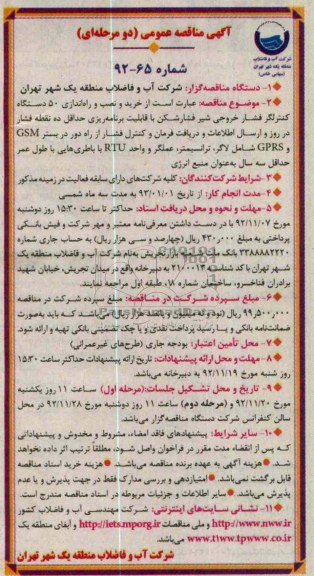 آگهی مناقصه عمومی (دو مرحله‌ای)
شرکت آب و فاضلاب
منطقه یک شهر تهران
(سهامی خاص)
شماره ۶۵-۹۲
۱- دستگاه مناقصه‌گزار: شرکت آب و فاضلاب منطقه یک شهر تهران
۲- موضوع مناقصه: عبارت است از خرید و نصب و راه‌اندازی ۵۰ دستگاه
کنترلگر فشار خروجی شیر فشارشکن با قابلیت برنامه‌ریزی حداقل ده نقطه فشار
در روز و ارسال اطلاعات و دریافت فرمان و کنترل فشار از راه دور بر بستر GSM
و GPRS شامل لاگر، ترانسمیتر، عملگر و واحد RTU با باطری‌هایی با طول عمر
حداقل سه سال به‌عنوان منبع انرژی
۳- شرایط شرکت‌کنندگان: کلیه شرکت‌های دارای سابقه فعالیت در زمینه مذکور
۴- مدت انجام کار: از تاریخ ۹۳/۰۱/۰۱ به مدت سه ماه شمسی
۵- مهلت و نحوه و محل دریافت اسناد: حداکثر تا ساعت ۱۵:۳۰ روز دوشنبه
مورخ ۹۲/۱۱/۰۷ با در دست داشتن معرفی‌نامه معتبر و مهر شرکت و فیش بانکی
پرداختی به مبلغ ۴۳۰٫۰۰۰ ریال (چهارصد و سی هزار ریال) به حساب جاری شماره
شهر تهران با کد شناسه ۲۱۰۰۰۱۳ به دبیرخانه واقع در میدان تجریش، خیابان شهید
برادران فتاخسرو، ساختمان شماره ۱۸، طبقه اول مراجعه نمایند.
۶- مبلغ سپرده شرکت در مناقصه: مبلغ سپرده شرکت در مناقصه
ضمانت‌نامه بانکی و یا رسید پرداخت نقدی و یا چک تضمینی بانکی تهیه و ارائه شود.
۷- محل تأمین اعتبار: بودجه جاری (طرح‌های غیرعمرانی)
۸- مهلت و محل ارائه پیشنهادات: تاریخ ارائه پیشنهادات حداکثر ساعت ۱۵:۳۰
روز شنبه مورخ ۹۲/۱۱/۱۹ به دبیرخانه می‌باشد.
۹- تاریخ و محل تشکیل جلسات: (مرحله اول) ساعت ۱۱ روز یکشنبه
مورخ ۹۲/۱۱/۲۰ و (مرحله دوم) ساعت ۱۱ روز دوشنبه مورخ ۹۲/۱۱/۲۸ در محل
سالن کنفرانس شرکت دستگاه مناقصه‌گزار می‌باشد.
۱۰- سایر شرایط: پیشنهادهای فاقد امضاء، مشروط و مخدوش و پیشنهاداتی
که پس از انقضاء مدت مقرر در فراخوان واصل شود، مطلقاً ترتیب اثر داده نخواهد
شد. ● هزینه آگهی به عهده برنده مناقصه می‌باشد. ● هزینه خرید اسناد مناقصه
قابل برگشت نمی‌باشد. ● امتیازدهی و بررسی مدارک فقط در جهت پذیرش و یا عدم
پذیرش می‌باشد. ● سایر اطلاعات و جزئیات مربوطه در اسناد مناقصه مندرج است.
۱۱- نشانی سایت‌های اینترنتی: شرکت مهندسی آب و فاضلاب کشور
http://www.nww.ir و ملی مناقصات http://iets.mporg.ir و آبفای منطقه یک
www.t1www.tpww.co.ir می‌باشد.
شرکت آب و فاضلاب منطقه یک شهر تهران